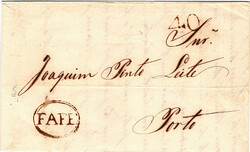 40
Snr.
Joaquim Pinto Leite
FAFE
Porto